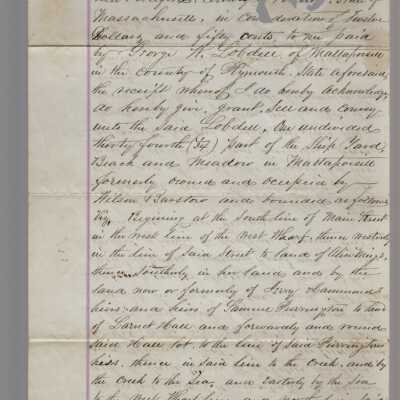 Massachusetts, in Consideration of Twelve
Dollars and fifty cents, to me paid
by George H. Lobdell of Mattapoisett
in the County of Plymouth, State aforesaid,
the receipt whereof I do hereby acknowledge,
do hereby give, grant, Sell and convey
unto the Said Lobdell, One undivided
thirty fourth part of the Ship Yard,
Beach and Meadow in Mattapoisett
formerly owned and occupied by
Wilson Barstow and bounded as follows
Viz. Begining at the South line of Main Street
in the West line of the West Wharf, thence westerly
in the line of Said Street to land of
thence Southerly in her land and by the
land now or formerly of Hammond
heirs and heirs of Purrington to land
of Hall and forwardly and round
Said Hall lot, to the line of Said Purringtons
heirs, thence in Said line to the Creek, and by
the Creek to the Sea, and easterly by the Sea
to the West Wharf line and